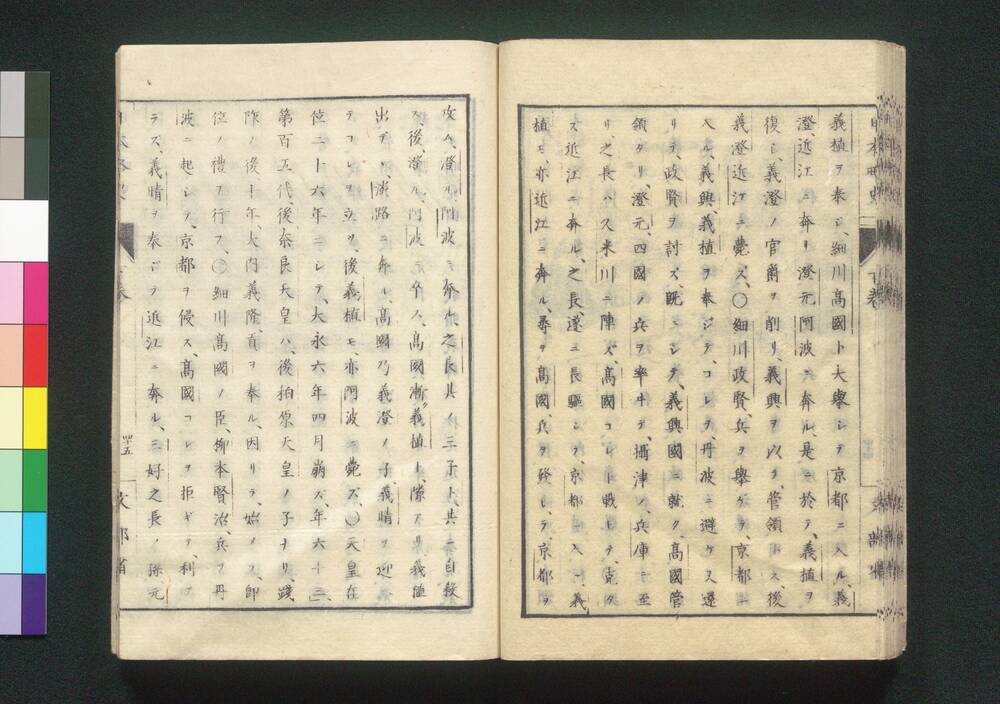 義植ヲ奉じ、細川高國ト大舉シテ京都ニ入ル、義
澄、近江ニ奔リ、澄元、阿波ニ奔ル、是ニ於テ、義植ヲ
復シ、義澄ノ官爵ヲ削リ、義興ヲ以テ、管領トス、後
義澄、近江ニ薨ズ、〇細川政賢、兵ヲ舉ゲテ、京都ニ
入ル、義興、義植ヲ奉ジテ、コレヲ丹波ニ避ケ、又還
リテ、政賢ヲ討ズ、既ニシテ、義興國ニ就ク、高國管
領タリ、澄元、四國ノ兵ヲ率ヰテ、攝津ノ兵庫ニ至
リ、之長ハ久米川ニ陣ス、高國コレト戰ヒテ、克タ
ズ、近江ニ奔ル、之長、遂ニ長驅シテ、京都ニ入ル、義
植モ亦近江ニ奔ル、尋デ高國、兵ヲ發シテ、京都ヲ
攻ム、澄元、阿波ニ奔ル、之長其ノ三子ト、共ニ自殺
ス、後、澄元、阿波ニ卒ス、高國漸ク義植ト隙アリ、義植
出デヽ淡路ニ奔ル、高國乃義澄ノ子、義晴ヲ迎ヘ
テコレヲ立ツ、後義植モ、亦阿波ニ薨ズ、〇天皇在
位二十六年ニシテ、大永六年四月崩ズ、年六十三、
第百五代、後奈良天皇ハ、後柏原天皇ノ子ナリ、踐
祚ノ後十年、大内義隆、貢ヲ奉ル、因リテ、始メテ、即
位ノ禮ヲ行フ、〇細川高國ノ臣、柳本賢治、兵ヲ丹
波ニ起シテ、京都ヲ侵ス、高國コレヲ拒ギテ、利ア
ラズ、義晴ヲ奉ジテ、近江ニ奔ル、三好之長ノ孫元
下卷
四十五
文部省